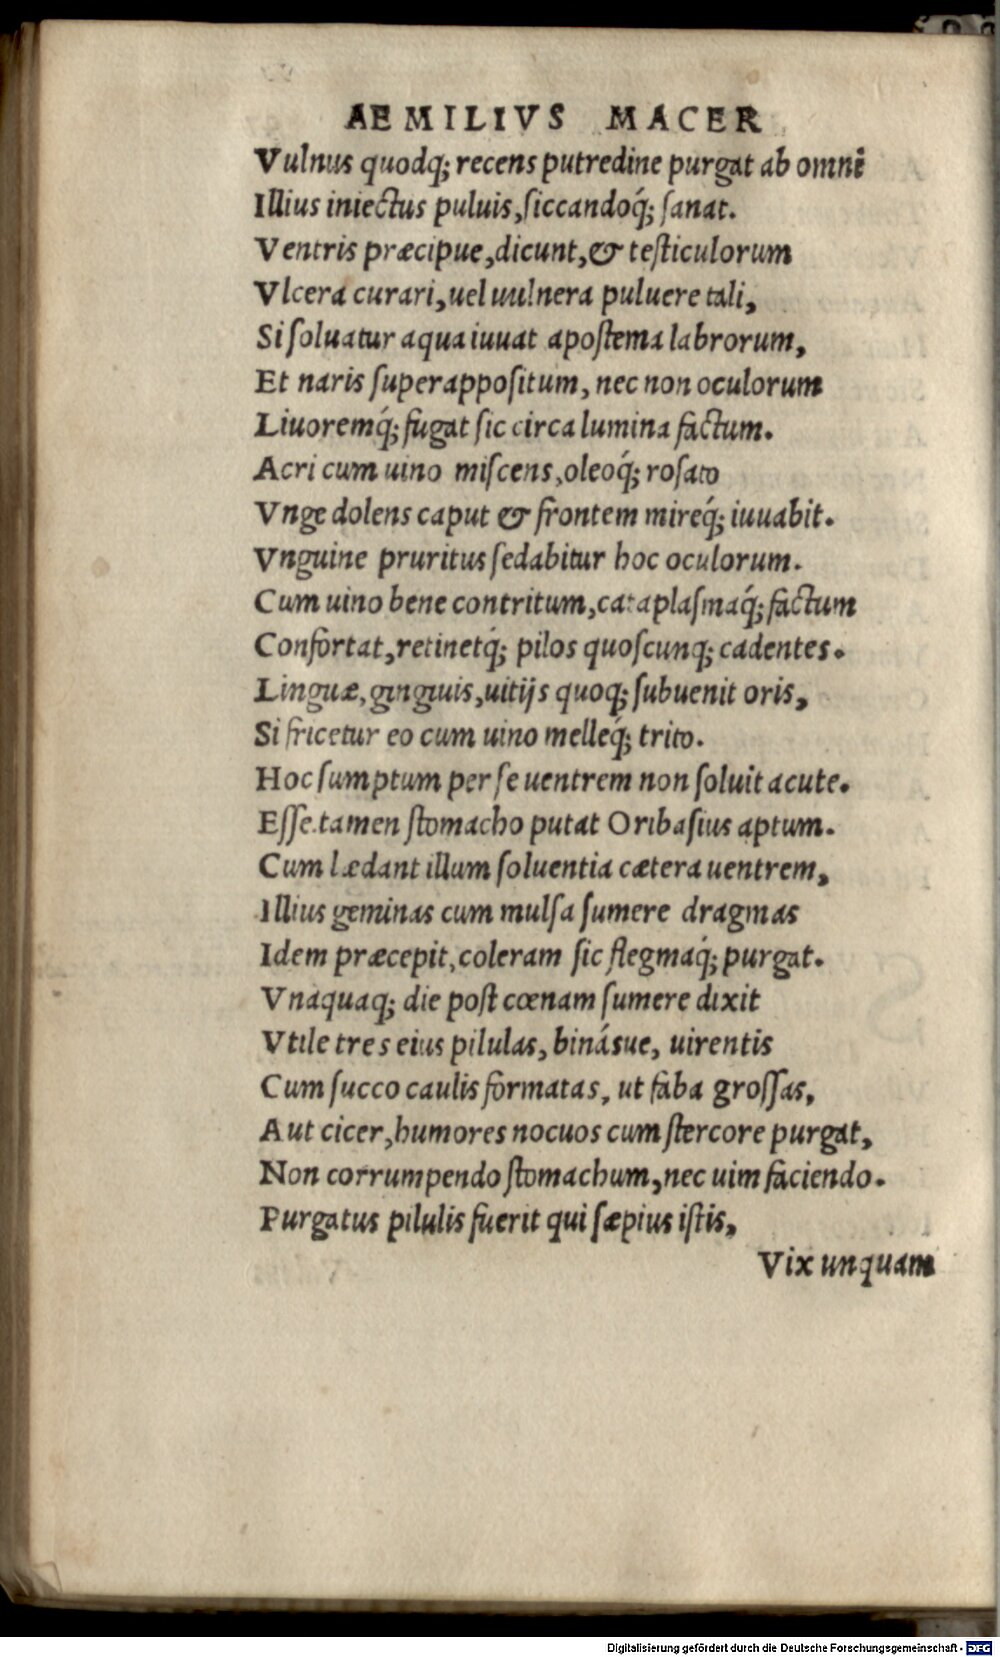 AEMILIVS MACER
Vulnus quodq; recens putredine purgat ab omni
Illius iniectus puluis, ſiccandoq́; ſanat.
Ventris præcipue, dicunt, & teſticulorum
Vlcera curari, uel uulnera puluere tali,
Si ſoluatur aqua iuuat apoſtema labrorum,
Et naris ſuperappoſitum, nec non oculorum
Liuoremq́; fugat ſic circa lumina factum.
Acri cum uino miſcens, oleoq́; roſato
Vnge dolens caput & frontem mireq́; iuuabit.
Vnguine pruritus ſedabitur hoc oculorum.
Cum uino bene contritum, cataplaſmaq́; factum
Confortat, retinetq́; pilos quoſcunq; cadentes.
Linguæ, gingiuis, uitijs quoq; ſubuenit oris,
Si fricetur eo cum uino melleq́; trito.
Hoc ſumptum per ſe uentrem non ſoluit acute.
Eſſe tamen ſtomacho putat Oribaſius aptum.
Cum lædant illum ſoluentia cætera uentrem,
Illius geminas cum mulſa ſumere dragmas
Idem præcepit, coleram ſic flegmaq́; purgat.
Vnaquaq; die poſt cœnam ſumere dixit
Vtile tres eius pilulas, binásue, uirentis
Cum ſucco caulis formatas, ut faba groſſas,
Aut cicer, humores nocuos cum ſtercore purgat,
Non corrumpendo ſtomachum, nec uim faciendo.
Purgatus pilulis fuerit qui ſæpius iſtis,
Vix unquam
Digitalisierung gefördert durch die Deutsche Forschungsgemeinschaft - DFG